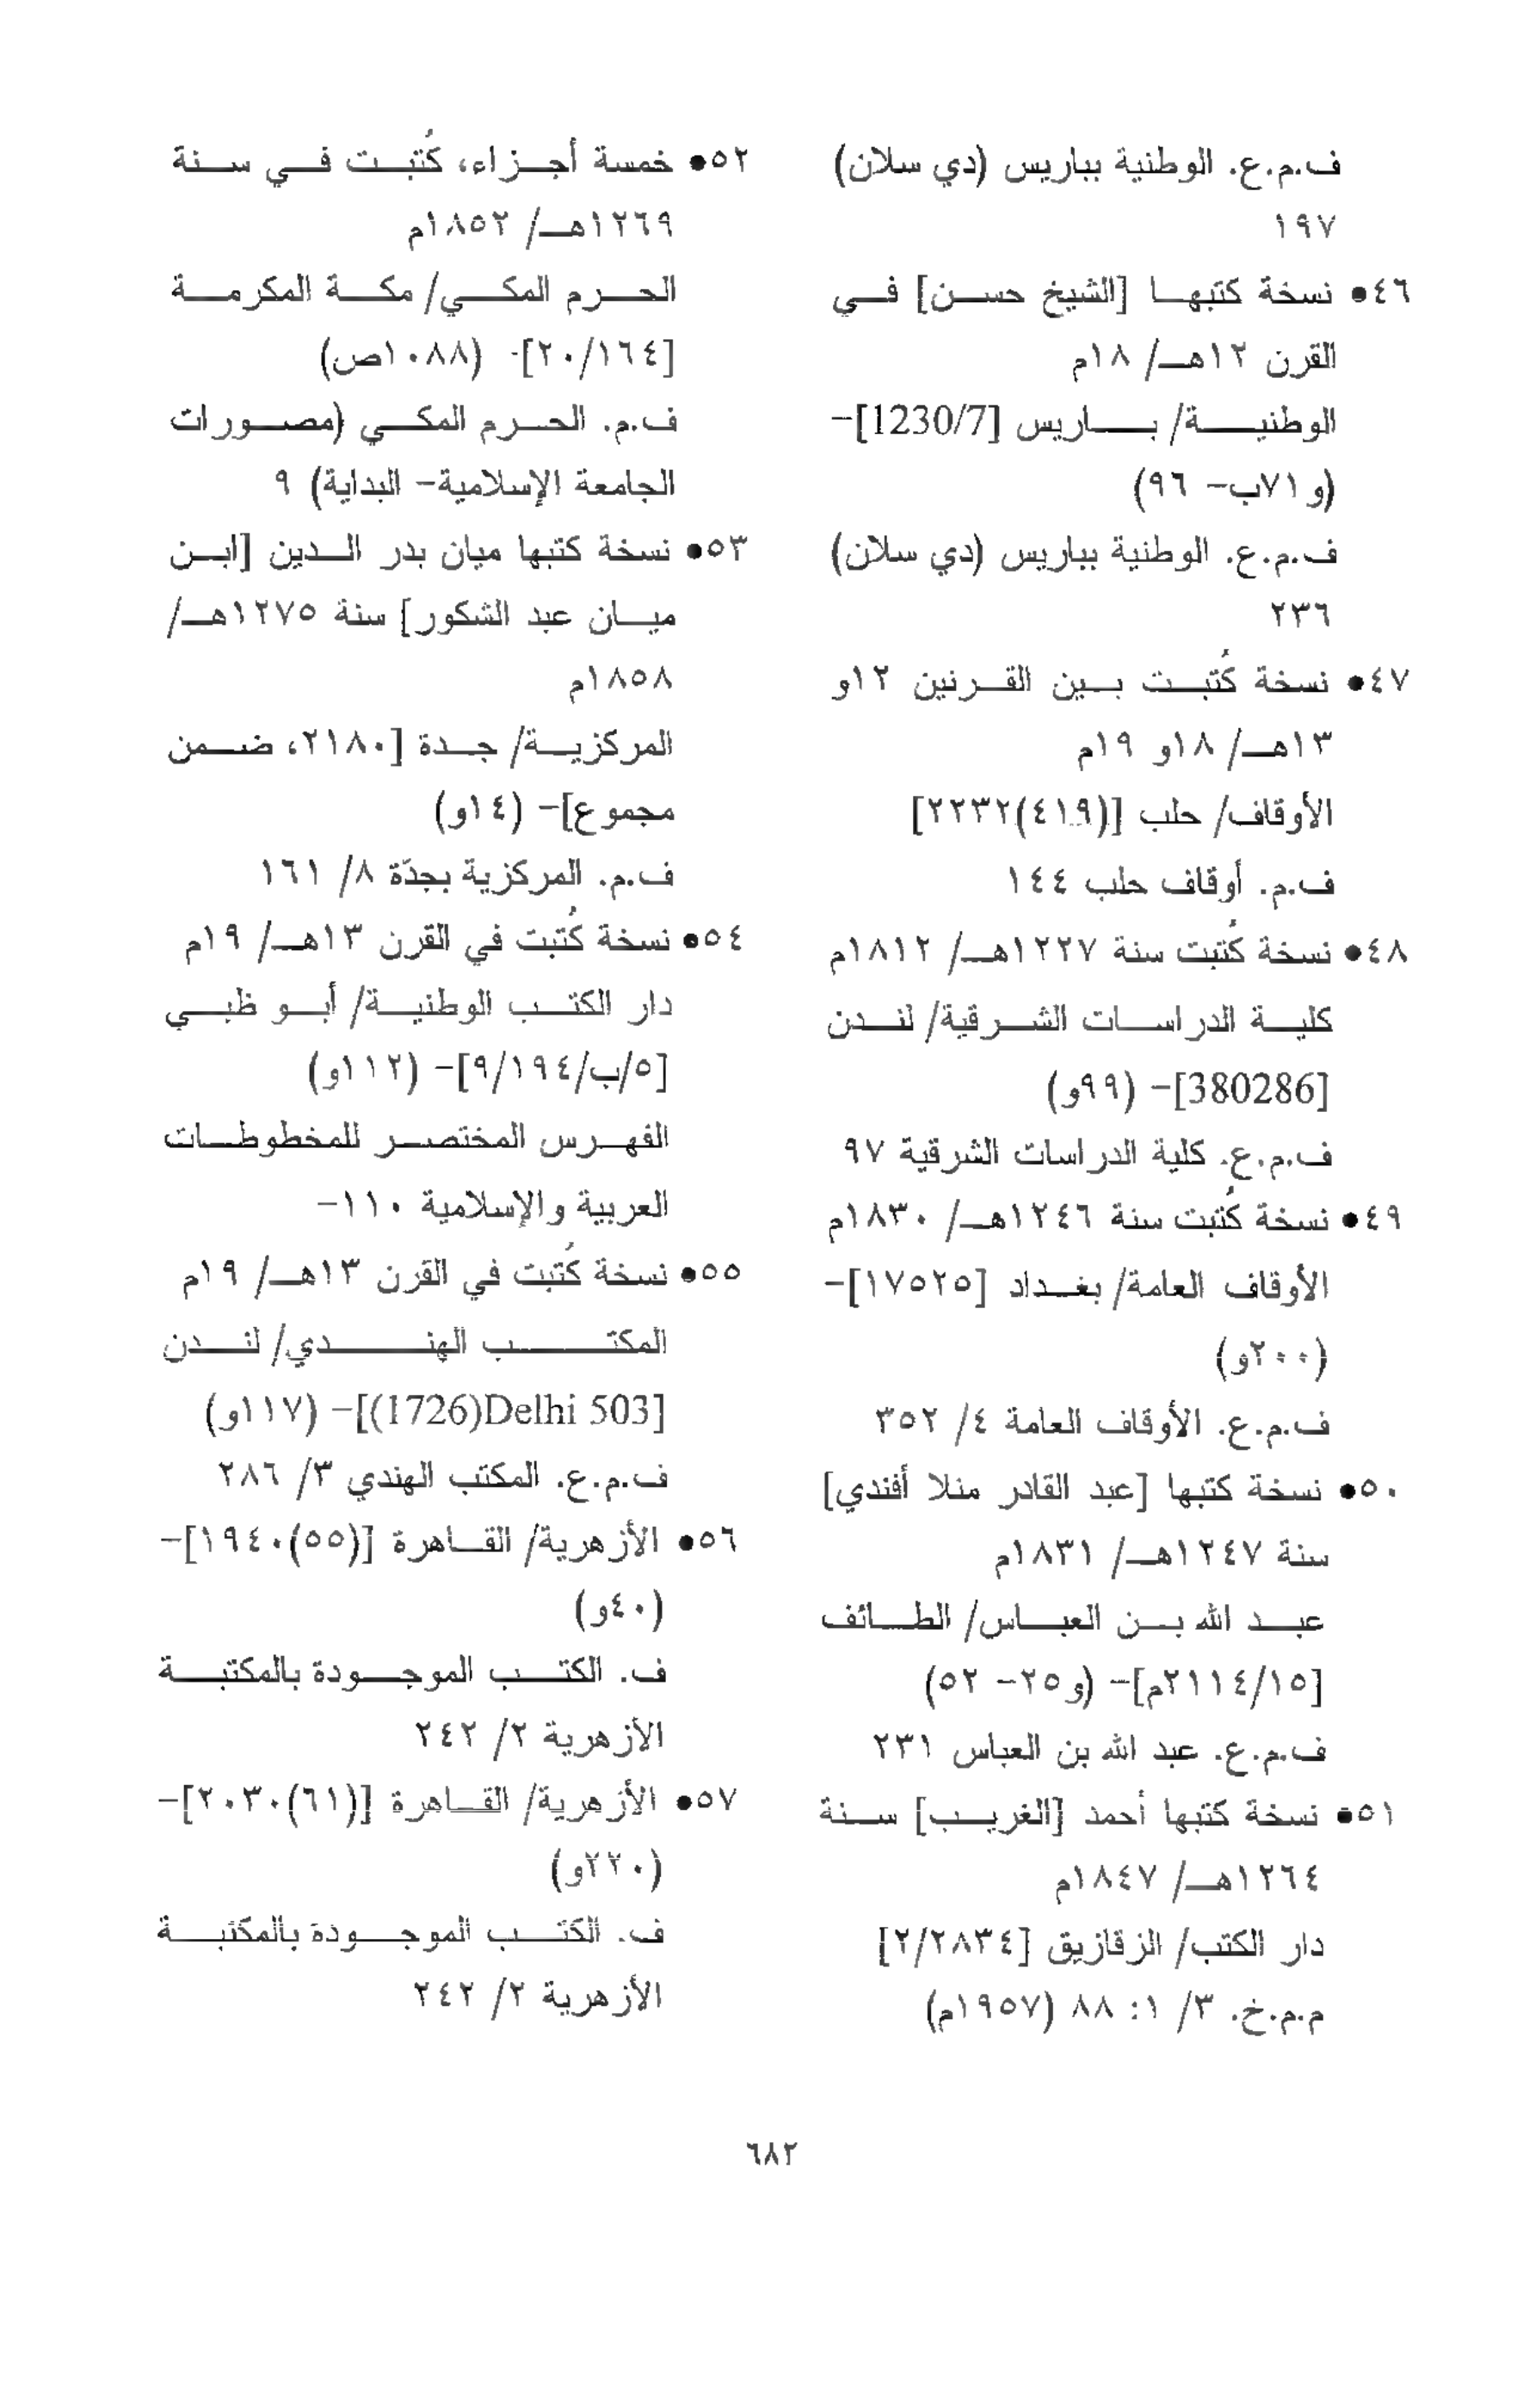 ف.م.ع. الوطنية بباريس (دي سلان)
١٩٧
٤٦● نسخة كتبها [الشيخ حسن] في
القرن ١٢هـ/ ١٨م
الوطنية/ باريس [1230/7]-
(و٧١ب- ٩٦)
ف.م.ع. الوطنية بباريس (دي سلان)
٢٣٦
٤٧● نسخة كُتبت بين القرنين ١٢و
١٣هـ/ ١٨و ١٩م
الأوقاف/ حلب [(٤١٩)٢٢٣٢]
ف.م. أوقاف حلب ١٤٤
٤٨● نسخة كُتبت سنة ١٢٢٧هـ/ ١٨١٢م
كلية الدراسات الشرقية/ لندن
[380286]- (٩٩و)
ف.م.ع. كلية الدراسات الشرقية ٩٧
٤٩● نسخة كُتبت سنة ١٢٤٦هـ/ ١٨٣٠م
الأوقاف العامة/ بغداد [١٧٥٢٥]-
(٢٠٠و)
ف.م.ع. الأوقاف العامة ٤/ ٣٥٢
٥٠● نسخة كتبها [عبد القادر منلا أفندي]
سنة ١٢٤٧هـ/ ١٨٣١م
عبد الله بن العباس/ الطائف
[٢١١٤/١٥م]- (و٢٥- ٥٢)
ف.م.ع. عبد الله بن العباس ٢٣١
٥١● نسخة كتبها أحمد [الغريب] سنة
١٢٦٤هـ/ ١٨٤٧م
دار الكتب/ الزقازيق [٢/٢٨٣٤]
م.م.خ. ٣/ ١: ٨٨ (١٩٥٧م)
٥٢● خمسة أجزاء، كُتبت في سنة
١٢٦٩هـ/ ١٨٥٢م
الحرم المكي/ مكة المكرمة
[٢٠/١٦٤]- (١٠٨٨ص)
ف.م. الحرم المكي (مصورات
الجامعة الإسلامية- البداية) ٩
٥٣● نسخة كتبها ميان بدر الدين [ابن
ميان عبد الشكور] سنة ١٢٧٥هـ/
١٨٥٨م
المركزية/ جدة [٢١٨٠، ضمن
مجموع]- (١٤و)
ف.م. المركزية بجدّة ٨/ ١٦١
٥٤● نسخة كُتبت في القرن ١٣هـ/ ١٩م
دار الكتب الوطنية/ أبو ظبي
[٥/ب/٩/١٩٤]- (١١٢و)
الفهرس المختصر للمخطوطات
العربية والإسلامية ١١٠-
٥٥● نسخة كُتبت في القرن ١٣هـ/ ١٩م
المكتب الهندي/ لندن
[(1726)Delhi 503]- (١١٧و)
ف.م.ع. المكتب الهندي ٣/ ٢٨٦
٥٦● الأزهرية/ القاهرة [(٥٥)١٩٤٠]-
(٤٠و)
ف. الكتب الموجودة بالمكتبة
الأزهرية ٢/ ٢٤٢
٥٧● الأزهرية/ القاهرة [(٦١)٢٠٣٠]-
(٢٢٠و)
ف. الكتب الموجودة بالمكتبة
الأزهرية ٢/ ٢٤٢
٦٨٢